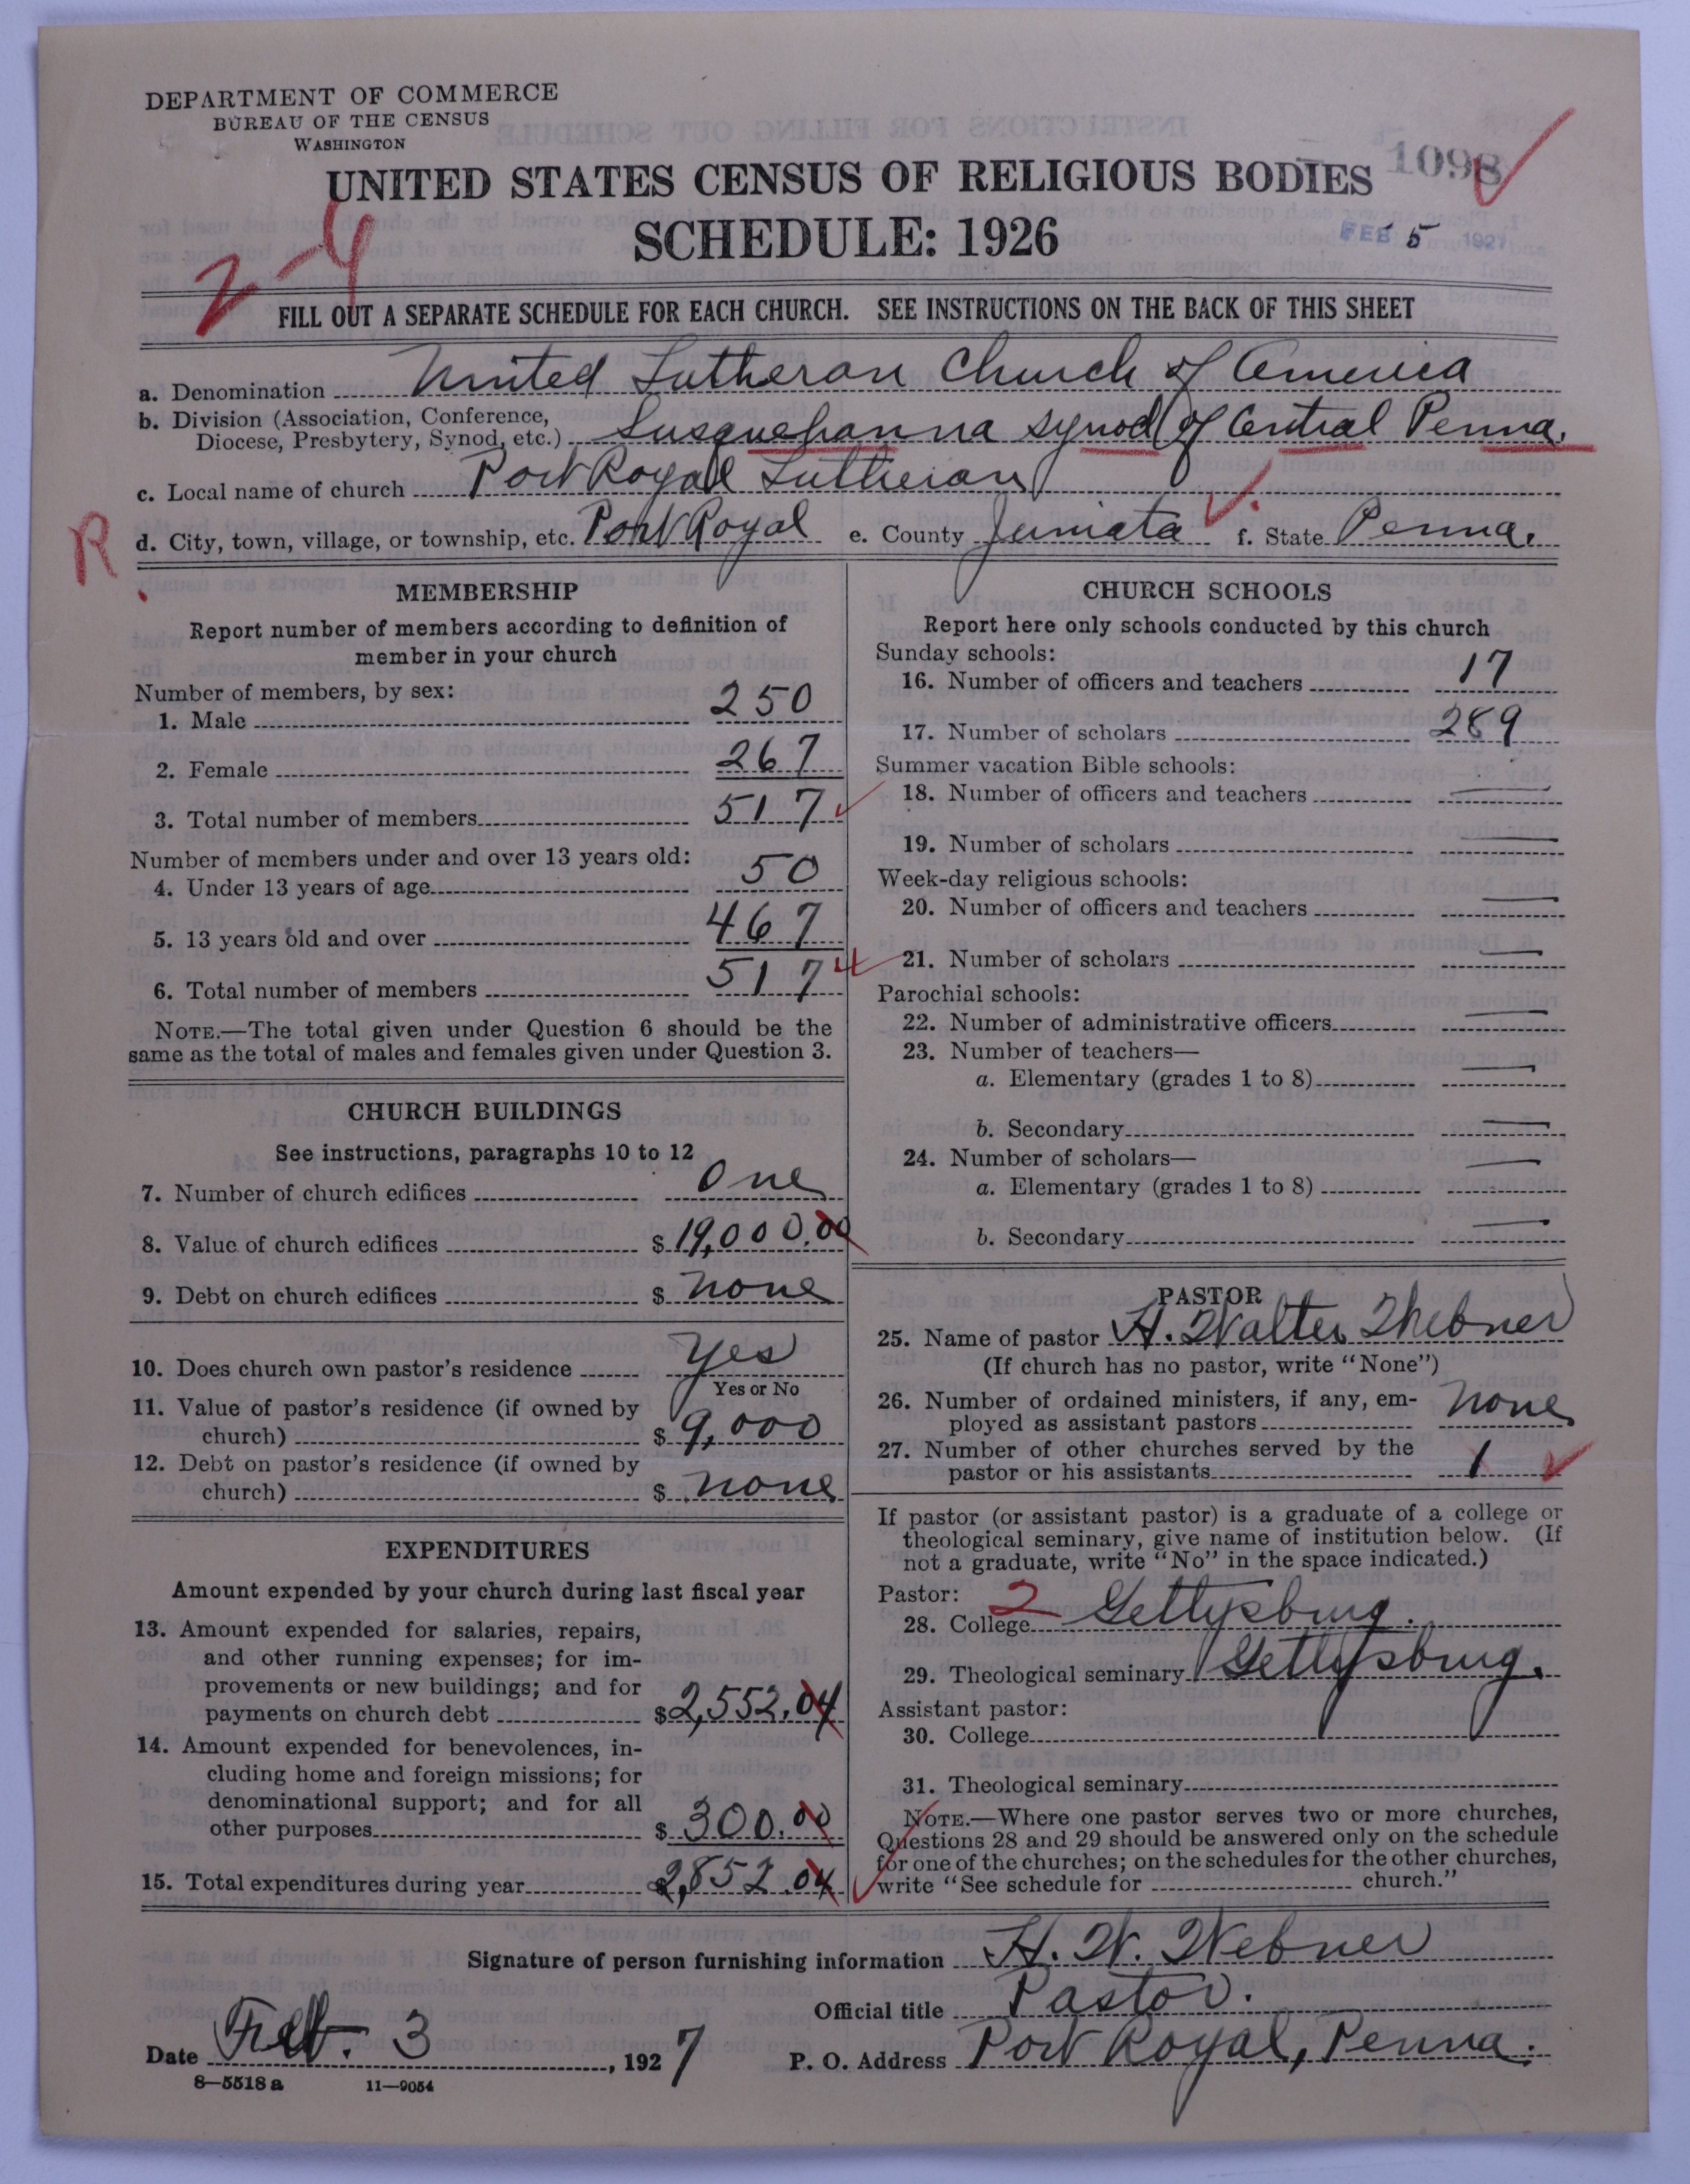 DEPARTMENT OF COMMERCE
BUREAU OF THE CENSUS
WASHINGTON
1098
UNITED STATES CENSUS OF RELIGIOUS BODIES
SCHEDULE: 1926
FEB 5 1927
2-4
FILL OUT A SEPARATE SCHEDULE FOR EACH CHURCH. SEE INSTRUCTIONS ON THE BACK OF THIS SHEET
a. Denomination United Lutheran Church of America
b. Division (Association, Conference,
Diocese, Presbytery, Synod, etc.) Susquehanna Synod (of Central Penna.
c. Local name of church Port Royal Lutheran
R
d. City, town, village, or township, etc. Port Royal e. County Juniata f. State Penna.
MEMBERSHIP
Report number of members according to definition of
member in your church
Number of members, by sex:
1. Male 250
2. Female 267
3. Total number of members 517
Number of members under and over 13 years old:
4. Under 13 years of age 50
5. 13 years old and over 467
6. Total number of members 517
NOTE.—The total given under Question 6 should be the
same as the total of males and females given under Question 3.
CHURCH BUILDINGS
See instructions, paragraphs 10 to 12
7. Number of church edifices One
8. Value of church edifices $ 19,000.00
9. Debt on church edifices $ none
10. Does church own pastor's residence Yes
Yes or No
11. Value of pastor's residence (if owned by
church) $ 9,000
12. Debt on pastor's residence (if owned by
church) $ none
EXPENDITURES
Amount expended by your church during last fiscal year
13. Amount expended for salaries, repairs,
and other running expenses; for im-
provements or new buildings; and for
payments on church debt $ 2,552.04
14. Amount expended for benevolences, in-
cluding home and foreign missions; for
denominational support; and for all
other purposes $ 300.00
15. Total expenditures during year 2,852.04
CHURCH SCHOOLS
Report here only schools conducted by this church
Sunday schools:
16. Number of officers and teachers 17
17. Number of scholars 289
Summer vacation Bible schools:
18. Number of officers and teachers —
19. Number of scholars —
Week-day religious schools:
20. Number of officers and teachers —
21. Number of scholars —
Parochial schools:
22. Number of administrative officers —
23. Number of teachers—
a. Elementary (grades 1 to 8) —
b. Secondary —
24. Number of scholars— —
a. Elementary (grades 1 to 8)
b. Secondary —
PASTOR
25. Name of pastor H. Walter Webner
(If church has no pastor, write "None")
26. Number of ordained ministers, if any, em-
ployed as assistant pastors none
27. Number of other churches served by the
pastor or his assistants 1
If pastor (or assistant pastor) is a graduate of a college or
theological seminary, give name of institution below. (If
not a graduate, write "No" in the space indicated.)
Pastor: 2
28. College Gettysburg.
29. Theological seminary Gettysburg.
Assistant pastor:
30. College
31. Theological seminary
NOTE.—Where one pastor serves two or more churches,
Questions 28 and 29 should be answered only on the schedule
for one of the churches; on the schedules for the other churches,
write "See schedule for church."
Signature of person furnishing information H. W. Webner
Official title Pastor.
Date Feb. 3, 1927 P. O. Address Port Royal, Penna.
8—5518 a 11—9054